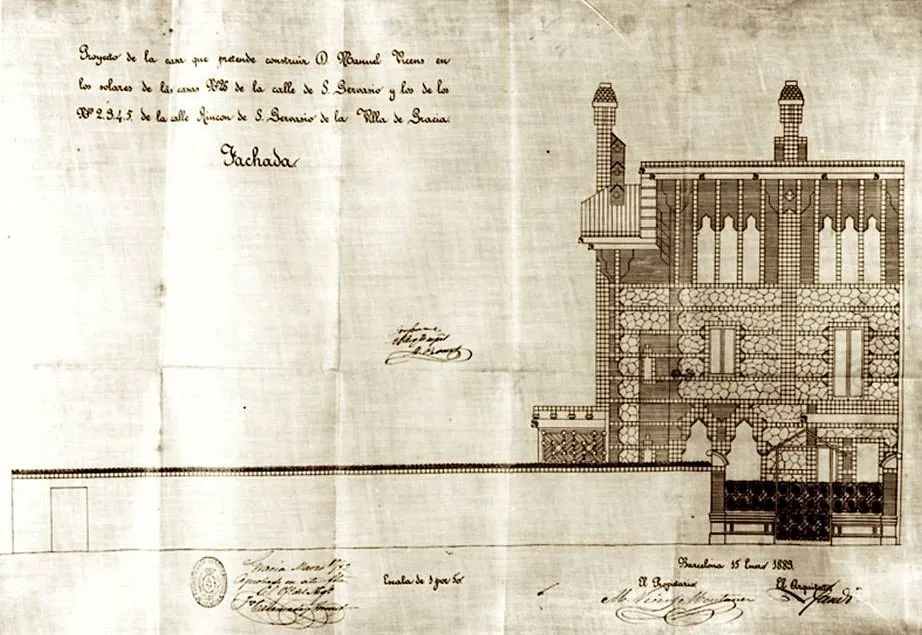 Proyecto de la casa que pretende construir D. Manuel Vicens en
los solares de las casas Nº 26 de la calle de S. Gervasio y los de los
Nº 2.3.4.5. de la calle Rincon de S. Gervasio de la Villa de Gracia.
Fachada
Gracia Marzo
Aprobado en
Escala de 1 por 50
Barcelona 15 Enero 1883.
El Propietario
El Arquitecto
M. Vicens Montaner
Gaudí